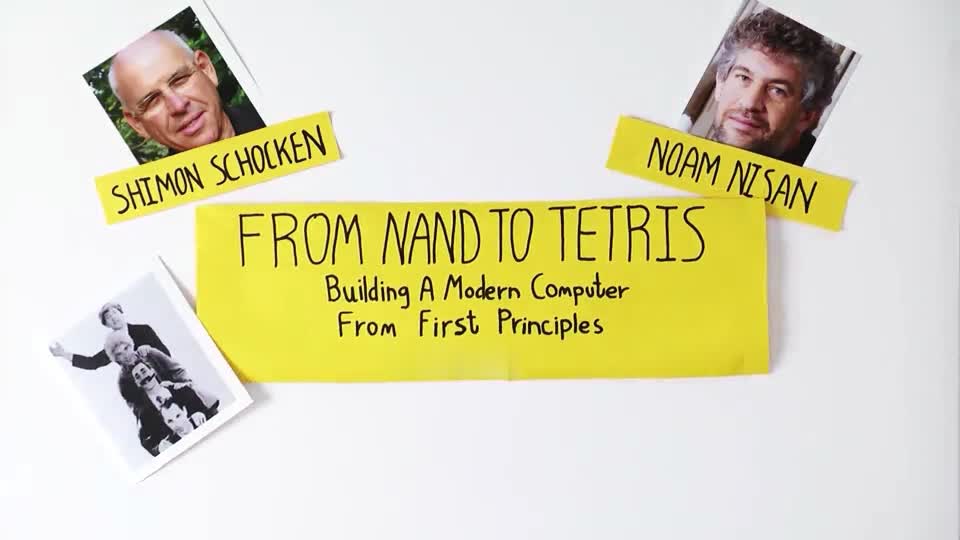 SHIMON SCHOCKEN
NOAM NISAN
FROM NAND TO TETRIS
Building A Modern Computer
From First Principles